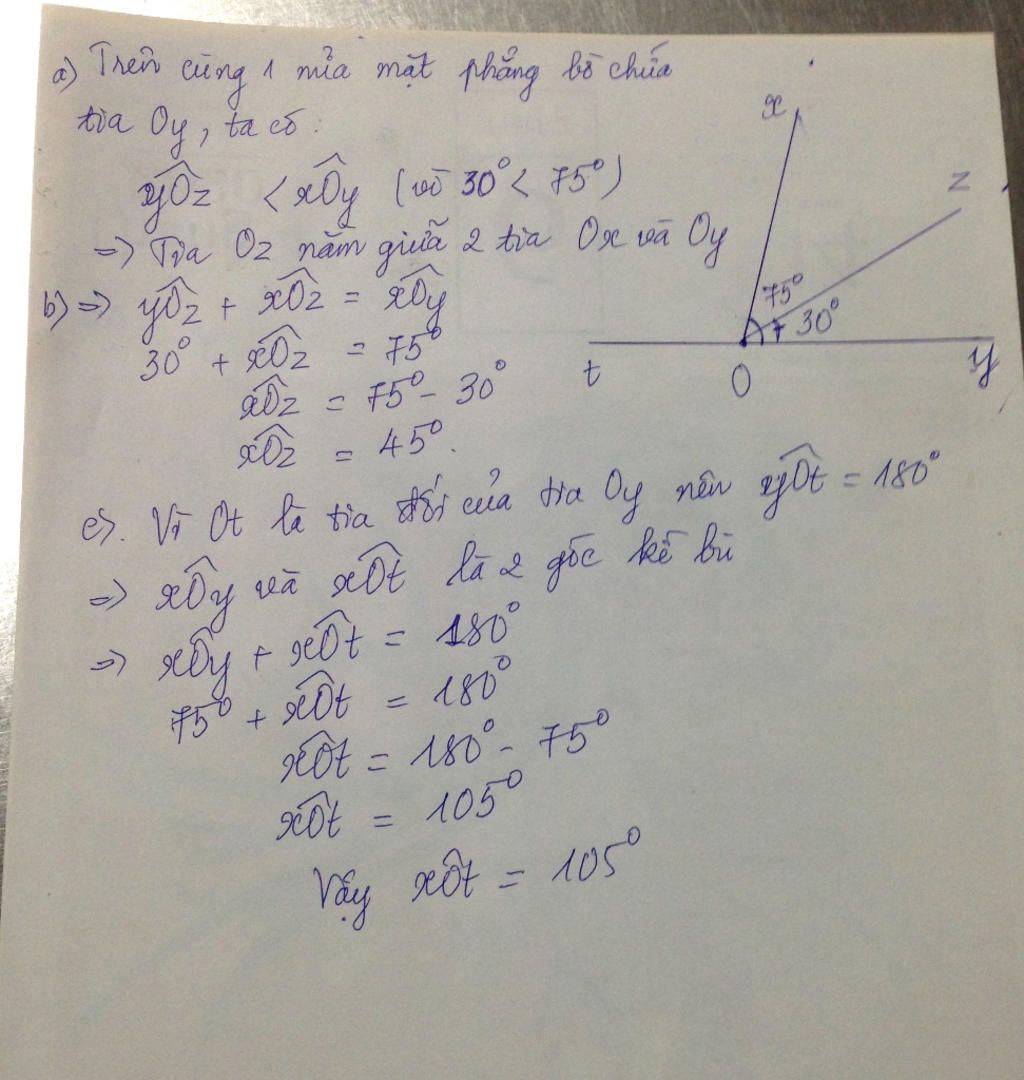 a) Trên cùng 1 nửa mặt phẳng bờ chứa
tia Oy, ta có:
yÔz < xÔy (vì 30° < 75°)
=> Tia Oz nằm giữa 2 tia Ox và Oy
b) => yÔz + xÔz = xÔy
30° + xÔz = 75°
xÔz = 75° - 30°
xÔz = 45°.
x
z
75°
30°
t
O
y
c). Vì Ot là tia đối của tia Oy nên yÔt = 180°
=> xÔy và xÔt là 2 góc kề bù
=> xÔy + xÔt = 180°
75° + xÔt = 180°
xÔt = 180° - 75°
xÔt = 105°
Vậy xÔt = 105°